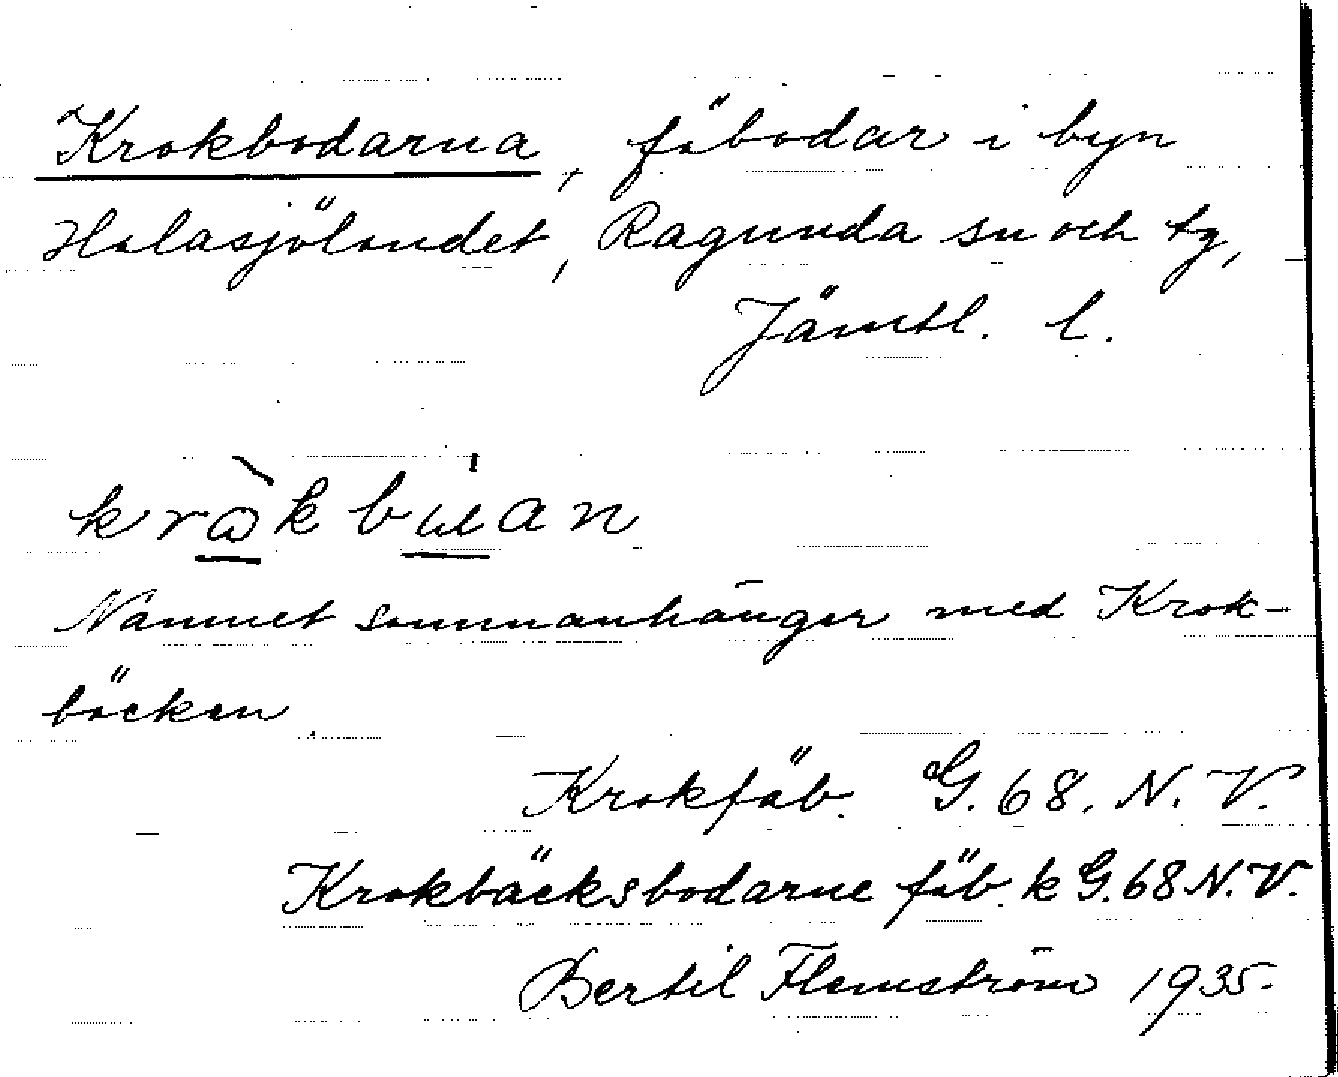 Krokbodarna, fäbodar i byn
Halasjölandet, Ragunda sn och tg,
Jämtl. l.
kråkbuan
Namnet sammanhänger med Krok-
bäcken
Krokfäb. G. 68. N. V.
Krokbäcksbodarne fäb. k G. 68 N. V.
Bertil Flemström 1935.